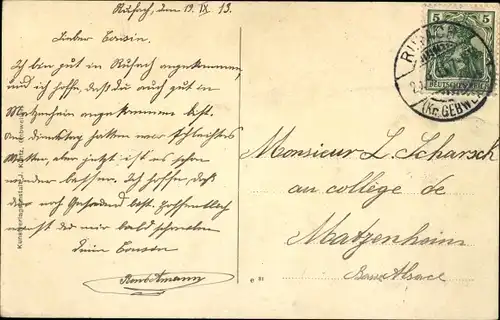 Rufach, den 19. IX 13.
Lieber Cousin.
Ich bin gut in Rufach angekommen,
und ich hoffe, daß du auch gut in
Matzenheim angekommen bist.
Am Dienstag hatten wir schlechtes
Wetter, aber jetzt ist es schon
wieder besser. Ich hoffe, daß
du noch gesund bist. Hoffentlich
wirst du mir bald schreiben
Dein Cousin
Monsieur L. Scharsch
au collège de
Matzenheim
Basse Alsace
5 5
DEUTSCHES REICH
(Kr. GEBW